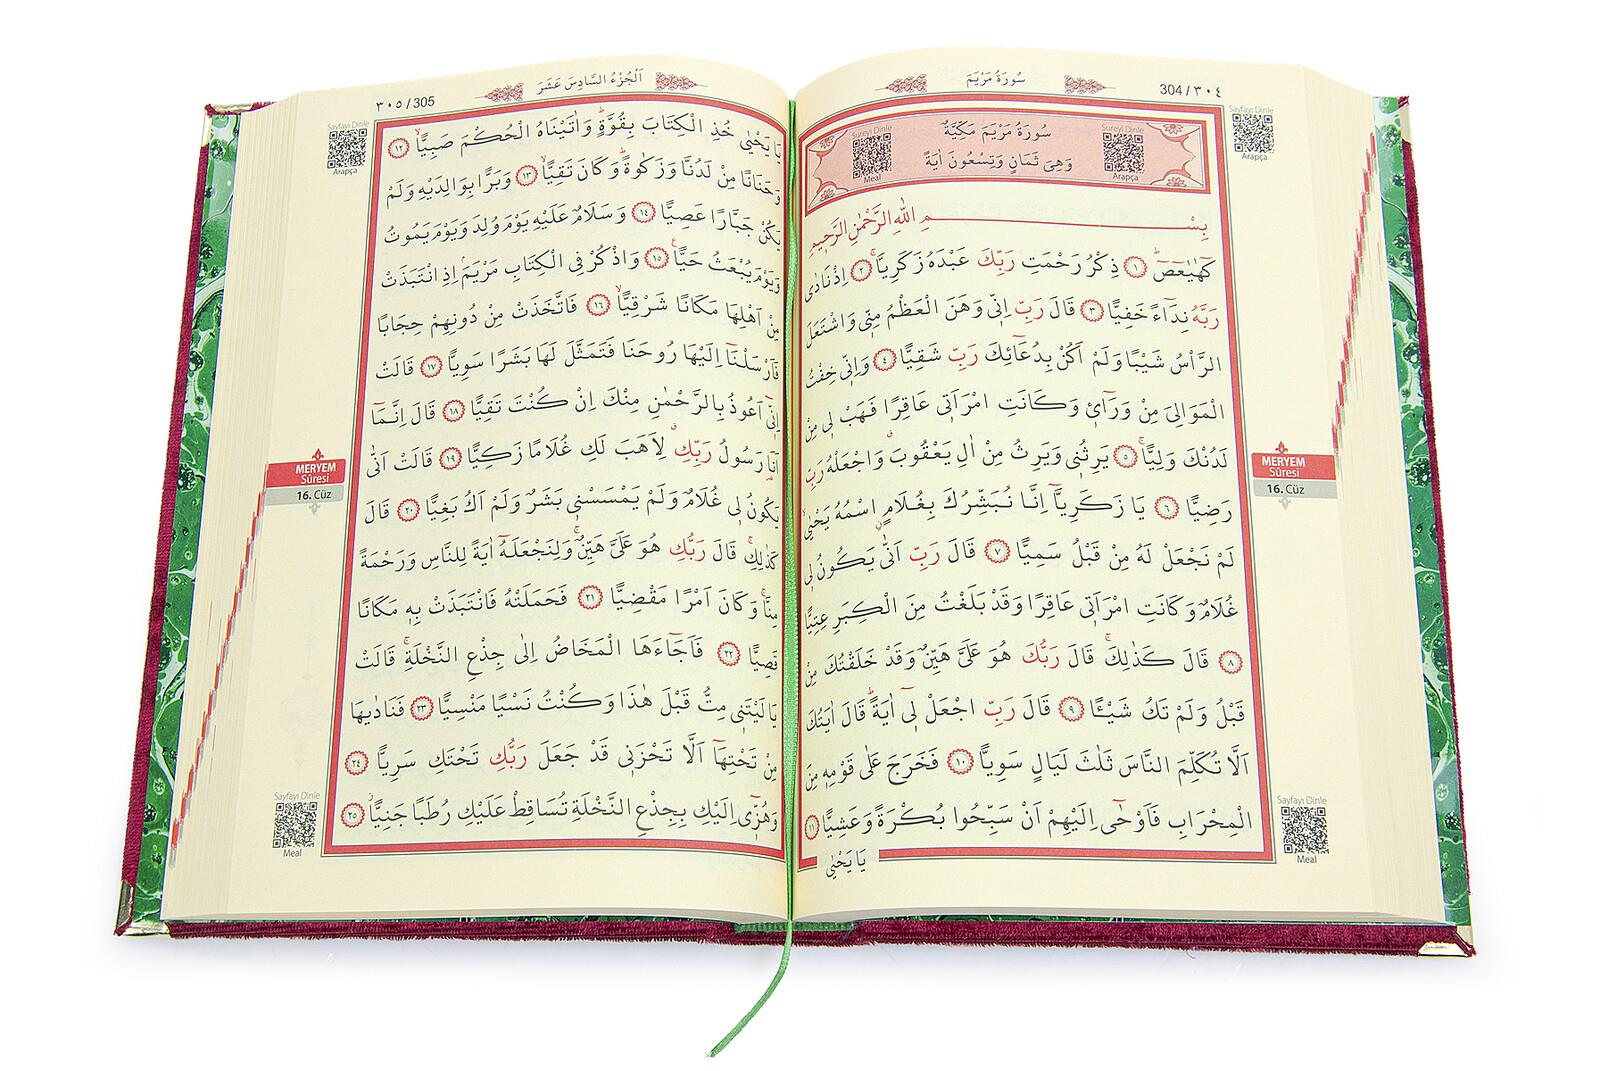 سُورَةُ مَرْيَمَ
304 / ٣٠٤
Sayfayı Dinle
Arapça
سُورَةُ مَرْيَمَ مَكِّيَّةٌ
وَهِيَ ثَمَانٍ وَتِسْعُونَ اٰيَةً
Sureyi Dinle
Arapça
Sureyi Dinle
Meal
بِسْمِ اللّٰهِ الرَّحْمٰنِ الرَّحِيمِ
كٓهٰيٰعٓصٓ ﴿١﴾ ذِكْرُ رَحْمَتِ رَبِّكَ عَبْدَهُ زَكَرِيَّا ﴿٢﴾ اِذْ نَادٰى
رَبَّهُ نِدَآءً خَفِيًّا ﴿٣﴾ قَالَ رَبِّ اِنّ۪ي وَهَنَ الْعَظْمُ مِنّ۪ي وَاشْتَعَلَ
الرَّاْسُ شَيْبًا وَلَمْ اَكُنْ بِدُعَآئِكَ رَبِّ شَقِيًّا ﴿٤﴾ وَاِنّ۪ي خِفْتُ
الْمَوَالِيَ مِنْ وَرَآئ۪ي وَكَانَتِ امْرَاَت۪ي عَاقِرًا فَهَبْ ل۪ي مِنْ
لَدُنْكَ وَلِيًّا ﴿٥﴾ يَرِثُن۪ي وَيَرِثُ مِنْ اٰلِ يَعْقُوبَ وَاجْعَلْهُ رَبِّ
رَضِيًّا ﴿٦﴾ يَا زَكَرِيَّٓا اِنَّا نُبَشِّرُكَ بِغُلَامٍ اسْمُهُ يَحْيٰى
لَمْ نَجْعَلْ لَهُ مِنْ قَبْلُ سَمِيًّا ﴿٧﴾ قَالَ رَبِّ اَنّٰى يَكُونُ ل۪ي
غُلَامٌ وَكَانَتِ امْرَاَت۪ي عَاقِرًا وَقَدْ بَلَغْتُ مِنَ الْكِبَرِ عِتِيًّا
﴿٨﴾ قَالَ كَذٰلِكَ قَالَ رَبُّكَ هُوَ عَلَيَّ هَيِّنٌ وَقَدْ خَلَقْتُكَ مِنْ
قَبْلُ وَلَمْ تَكُ شَيْـًٔا ﴿٩﴾ قَالَ رَبِّ اجْعَلْ ل۪ٓي اٰيَةً قَالَ اٰيَتُكَ
اَلَّا تُكَلِّمَ النَّاسَ ثَلٰثَ لَيَالٍ سَوِيًّا ﴿١٠﴾ فَخَرَجَ عَلٰى قَوْمِه۪ مِنَ
الْمِحْرَابِ فَاَوْحٰٓى اِلَيْهِمْ اَنْ سَبِّحُوا بُكْرَةً وَعَشِيًّا ﴿١١﴾
يَا يَحْيٰى
MERYEM
Sûresi
16. Cüz
Sayfayı Dinle
Meal
اَلْجُزْءُ السَّادِسَ عَشَرَ
٣٠٥ / 305
Sayfayı Dinle
Arapça
يَا يَحْيٰى خُذِ الْكِتَابَ بِقُوَّةٍ وَاٰتَيْنَاهُ الْحُكْمَ صَبِيًّا ﴿١٢﴾
وَحَنَانًا مِنْ لَدُنَّا وَزَكٰوةً وَكَانَ تَقِيًّا ﴿١٣﴾ وَبَرًّا بِوَالِدَيْهِ وَلَمْ
يَكُنْ جَبَّارًا عَصِيًّا ﴿١٤﴾ وَسَلَامٌ عَلَيْهِ يَوْمَ وُلِدَ وَيَوْمَ يَمُوتُ
وَيَوْمَ يُبْعَثُ حَيًّا ﴿١٥﴾ وَاذْكُرْ فِي الْكِتَابِ مَرْيَمَ اِذِ انْتَبَذَتْ
مِنْ اَهْلِهَا مَكَانًا شَرْقِيًّا ﴿١٦﴾ فَاتَّخَذَتْ مِنْ دُونِهِمْ حِجَابًا
فَاَرْسَلْنَٓا اِلَيْهَا رُوحَنَا فَتَمَثَّلَ لَهَا بَشَرًا سَوِيًّا ﴿١٧﴾ قَالَتْ
اِنّ۪ٓي اَعُوذُ بِالرَّحْمٰنِ مِنْكَ اِنْ كُنْتَ تَقِيًّا ﴿١٨﴾ قَالَ اِنَّمَٓا
اَنَا۬ رَسُولُ رَبِّكِ لِاَهَبَ لَكِ غُلَامًا زَكِيًّا ﴿١٩﴾ قَالَتْ اَنّٰى
يَكُونُ ل۪ي غُلَامٌ وَلَمْ يَمْسَسْن۪ي بَشَرٌ وَلَمْ اَكُ بَغِيًّا ﴿٢٠﴾ قَالَ
كَذٰلِكِ قَالَ رَبُّكِ هُوَ عَلَيَّ هَيِّنٌ وَلِنَجْعَلَهُٓ اٰيَةً لِلنَّاسِ وَرَحْمَةً
مِنَّا وَكَانَ اَمْرًا مَقْضِيًّا ﴿٢١﴾ فَحَمَلَتْهُ فَانْتَبَذَتْ بِه۪ مَكَانًا
قَصِيًّا ﴿٢٢﴾ فَاَجَٓاءَهَا الْمَخَاضُ اِلٰى جِذْعِ النَّخْلَةِ قَالَتْ
يَا لَيْتَن۪ي مِتُّ قَبْلَ هٰذَا وَكُنْتُ نَسْيًا مَنْسِيًّا ﴿٢٣﴾ فَنَادٰيهَا
مِنْ تَحْتِهَٓا اَلَّا تَحْزَن۪ي قَدْ جَعَلَ رَبُّكِ تَحْتَكِ سَرِيًّا ﴿٢٤﴾
وَهُزّ۪ٓي اِلَيْكِ بِجِذْعِ النَّخْلَةِ تُسَاقِطْ عَلَيْكِ رُطَبًا جَنِيًّا ﴿٢٥﴾
MERYEM
Sûresi
16. Cüz
Sayfayı Dinle
Meal